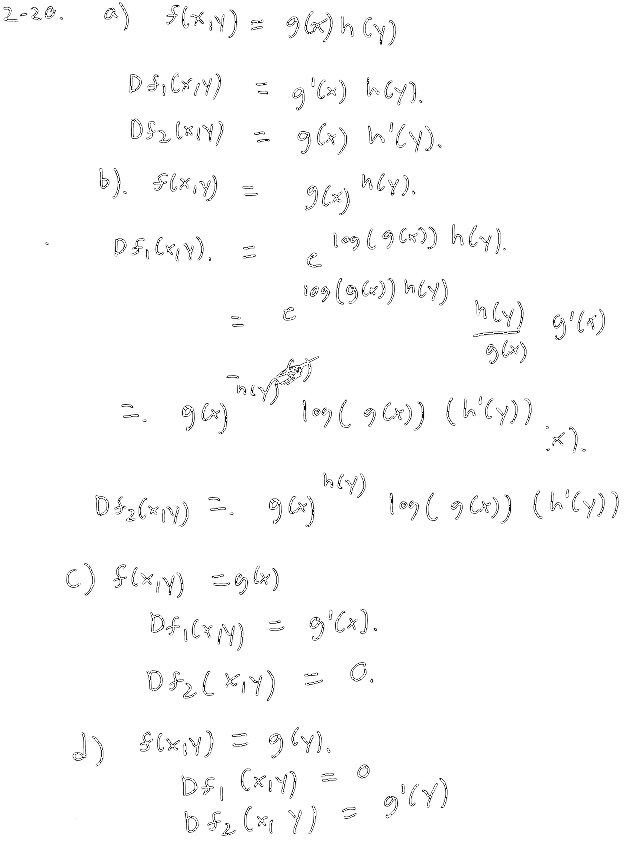 2-20. a) f(x,y) = g(x) h(y)
Df₁(x,y) = g'(x) h(y).
Df₂(x,y) = g(x) h'(y).
b). f(x,y) = g(x)^h(y).
Df₁(x,y). = e^log(g(x)) h(y).
= e^log(g(x)) h(y) h(y)/g(x) g'(x)
=. g(x)^h(y) log(g(x)) (h'(y)) x).
Df₂(x,y) =. g(x)^h(y) log(g(x)) (h'(y))
c) f(x,y) = g(x)
Df₁(x,y) = g'(x).
Df₂(x,y) = 0.
d) f(x,y) = g(y).
Df₁(x,y) = 0
Df₂(x, y) = g'(y)